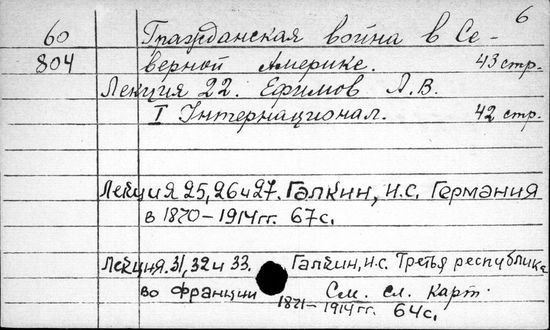 6
60 Гражданская война в Се-
804 верной Америке. 43 стр.
Лекция 22. Ефимов А.В.
I Интернационал. 42 стр.
Лекция 25, 26 и 27. Галкин, И.С. Германия
в 1870-1914 гг. 67 с.
Лекция. 31, 32 и 33. Галкин, И.С. Третья республика
во Франции См. сл. карт.
1871-1914 гг. 64 с.